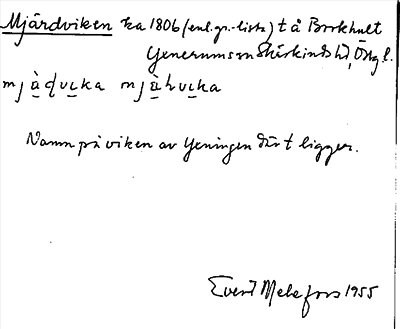 Mjärdviken ka 1806 (enl. gr.-lista) t å Brokhult
Yenerums sn Skärkinds hd, Ögl.
mjà̱ḍvɩ̱ka mjà̱ḷvɩ̱ka
Namn på viken av Yeningen där t ligger.
Evert Melefors 1955